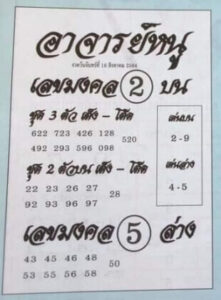 อาจารย์หนู
งวดวันจันทร์ที่ 16 สิงหาคม 2564
เลขมงคล 2 บน
ชุด 3 ตัว เต็ง - โต๊ด
622 723 426 128
492 293 596 098
520
เด่นบน
2 - 9
ชุด 2 ตัวบน เต็ง - โต๊ด
22 23 26 27
92 93 96 97
28
เด่นล่าง
4 - 5
เลขมงคล 5 ล่าง
43 45 46 48
53 55 56 58
50